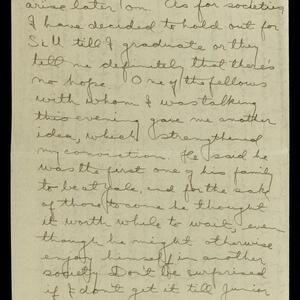 arise later on. As for societies
I have decided to hold out for
S & M till I graduate or they
tell me definitely that there's
no hope. One of the fellows
with whom I was talking
this evening gave me another
idea, which strengthened
my conviction. He said he
was the first one of his family
to be at Yale, and for the sake
of those to come he thought
it worth while to wait, even
though he might otherwise
enjoy himself in another
society. Don't be surprised
if I don't get it till Junior